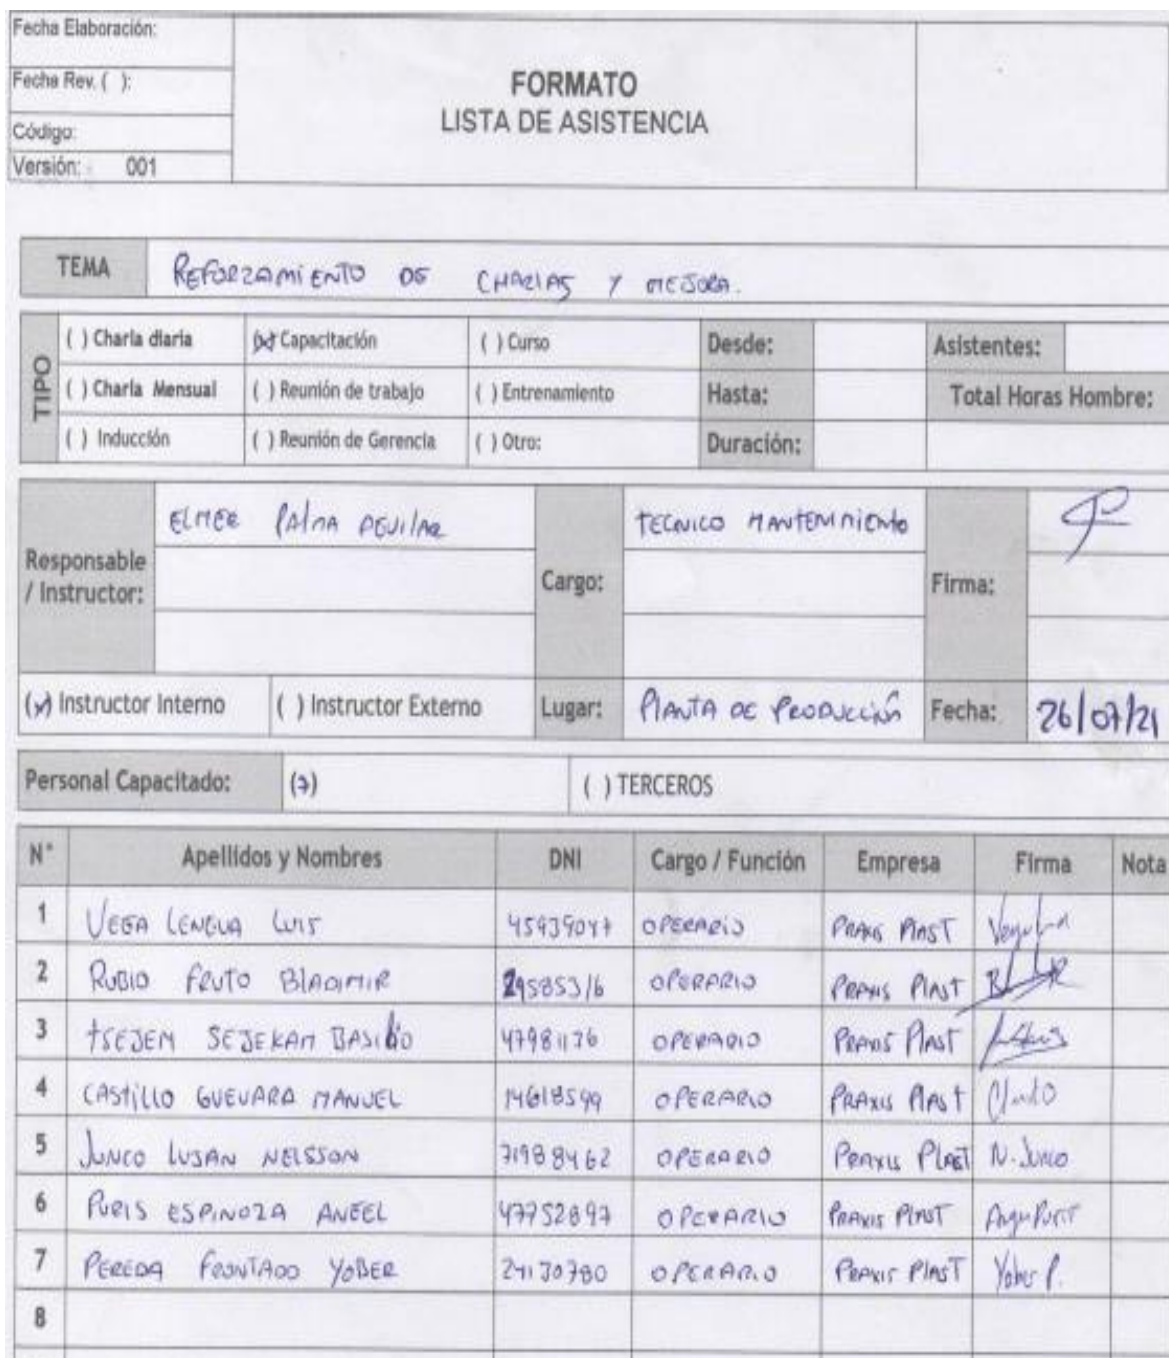 Fecha Elaboración:
Fecha Rev. ( ):
Código:
Versión: 001
FORMATO
LISTA DE ASISTENCIA
TEMA REFORZAMIENTO DE CHARLAS Y MEJORA.
TIPO
( ) Charla diaria (x) Capacitación ( ) Curso Desde: Asistentes:
( ) Charla Mensual ( ) Reunión de trabajo ( ) Entrenamiento Hasta: Total Horas Hombre:
( ) Inducción ( ) Reunión de Gerencia ( ) Otro: Duración:
Responsable / Instructor: ELMER PALMA AGUILAR Cargo: TECNICO MANTENIMIENTO Firma:
(x) Instructor Interno ( ) Instructor Externo Lugar: PLANTA DE PRODUCCIÓN Fecha: 26/07/21
Personal Capacitado: (7) ( ) TERCEROS
N° Apellidos y Nombres DNI Cargo / Función Empresa Firma Nota
1 VEGA LENGUA LUIS OPERARIO PRAXIS PLAST
2 RUBIO FRUTO BLADIMIR OPERARIO PRAXIS PLAST
3 TSEJEM SEJEKAM BASILIO 47981176 OPERARIO PRAXIS PLAST
4 CASTILLO GUEVARA MANUEL 14618599 OPERARIO PRAXIS PLAST
5 JUNCO LUJAN NELSSON 71988462 OPERARIO PRAXIS PLAST N. Junco
6 PURIS ESPINOZA ANGEL 47752897 OPERARIO PRAXIS PLAST
7 PEREDA FRONTADO YOBER 24130780 OPERARIO PRAXIS PLAST Yober P.
8